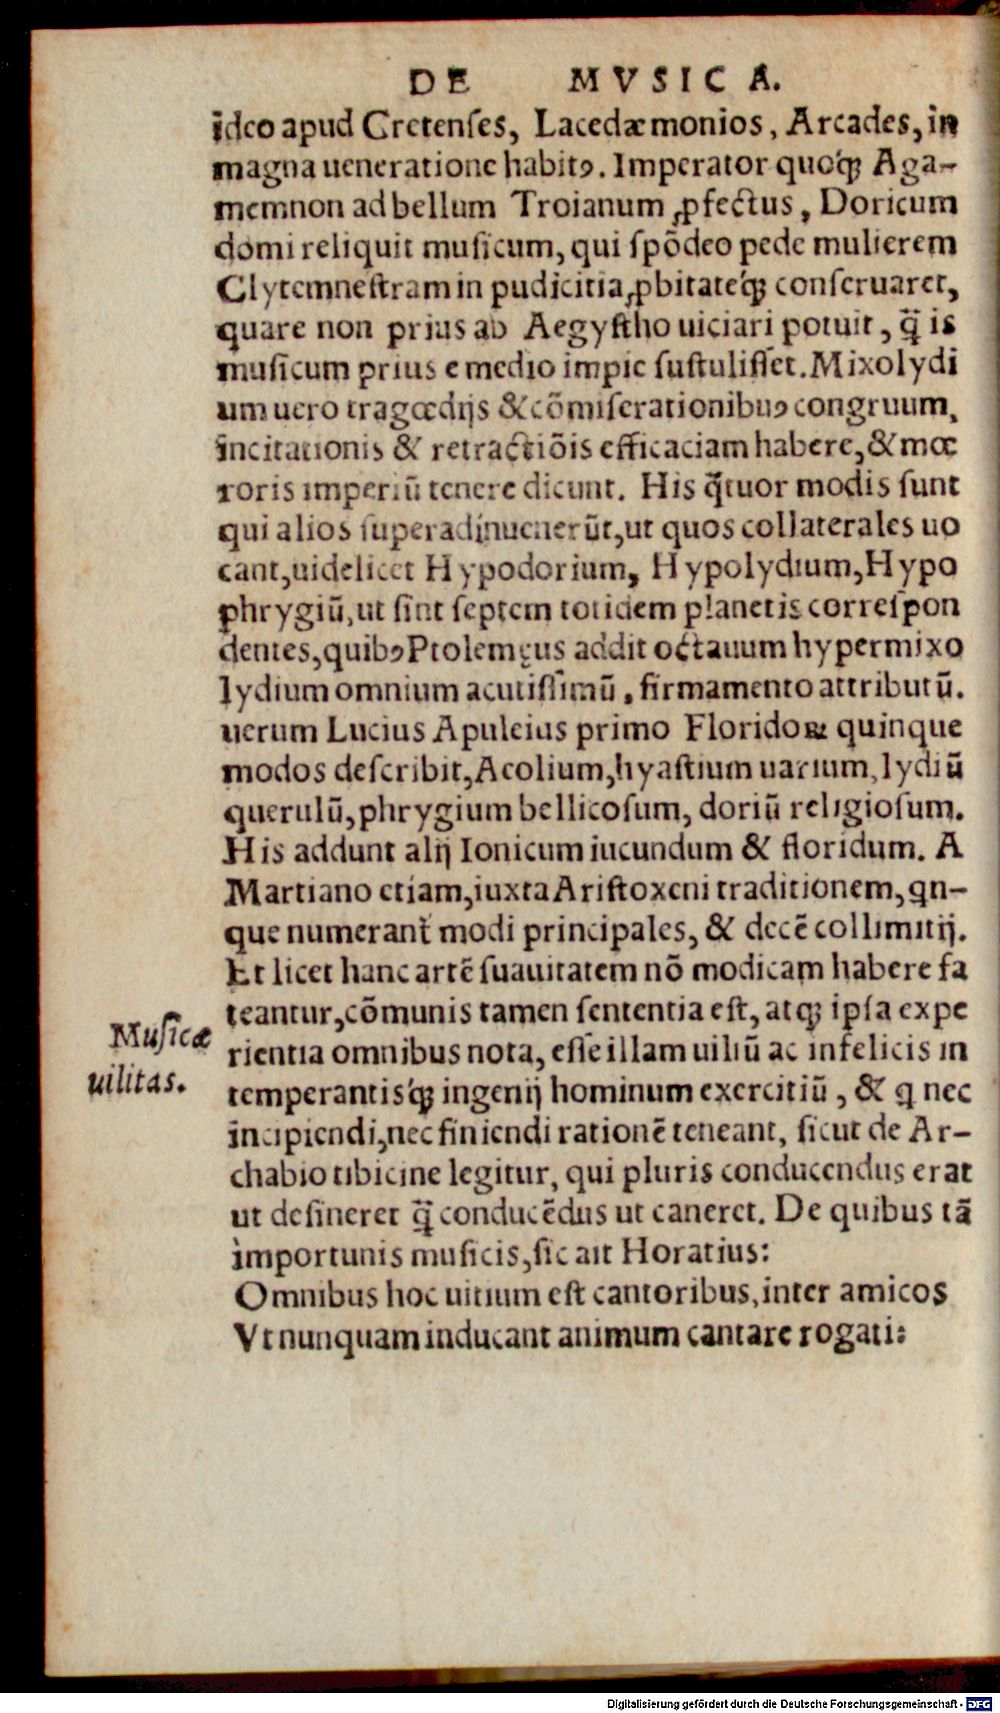 DE MVSICA.
ideo apud Cretenſes, Lacedæmonios, Arcades, in
magna ueneratione habitꝰ. Imperator quoq́ꝫ Aga-
memnon ad bellum Troianum ꝓfectus, Doricum
domi reliquit muſicum, qui ſpōdeo pede mulierem
Clytemneſtram in pudicitia ꝓbitateq́ꝫ conſeruaret,
quare non prius ab Aegyſtho uiciari potuit, q̃ is
muſicum prius e medio impie ſuſtuliſſet. Mixolydi
um uero tragœdijs & cōmiſerationibuꝰ congruum,
incitationis & retractiōis efficaciam habere, & mœ
roris imperiū tenere dicunt. His q̃tuor modis ſunt
qui alios ſuperadinuenerūt, ut quos collaterales uo
cant, uidelicet Hypodorium, Hypolydium, Hypo
phrygiū, ut ſint ſeptem totidem planetis correſpon
dentes, quibꝰ Ptolemęus addit octauum hypermixo
lydium omnium acutiſſimū, firmamento attributū.
uerum Lucius Apuleius primo Floridoꝝ quinque
modos deſcribit, Aeolium, hyaſtium uarium, lydiū
querulū, phrygium bellicoſum, doriū religioſum.
His addunt alij Ionicum iucundum & floridum. A
Martiano etiam, iuxta Ariſtoxeni traditionem, qn-
que numerant̃ modi principales, & decē collimitij.
Et licet hanc artē ſuauitatem nō modicam habere fa
teantur, cōmunis tamen ſententia eſt, atqꝫ ipſa expe
rientia omnibus nota, eſſe illam uiliū ac infelicis in
temperantisq́ꝫ ingenij hominum exercitiū, & q nec
incipiendi, nec finiendi rationē teneant, ſicut de Ar-
chabio tibicine legitur, qui pluris conducendus erat
ut deſineret q̃ conducēdus ut caneret. De quibus tā
importunis muſicis, ſic ait Horatius:
Omnibus hoc uitium eſt cantoribus, inter amicos
Vt nunquam inducant animum cantare rogati:
Muſicæ
uilitas.
Digitalisierung gefördert durch die Deutsche Forschungsgemeinschaft - DFG